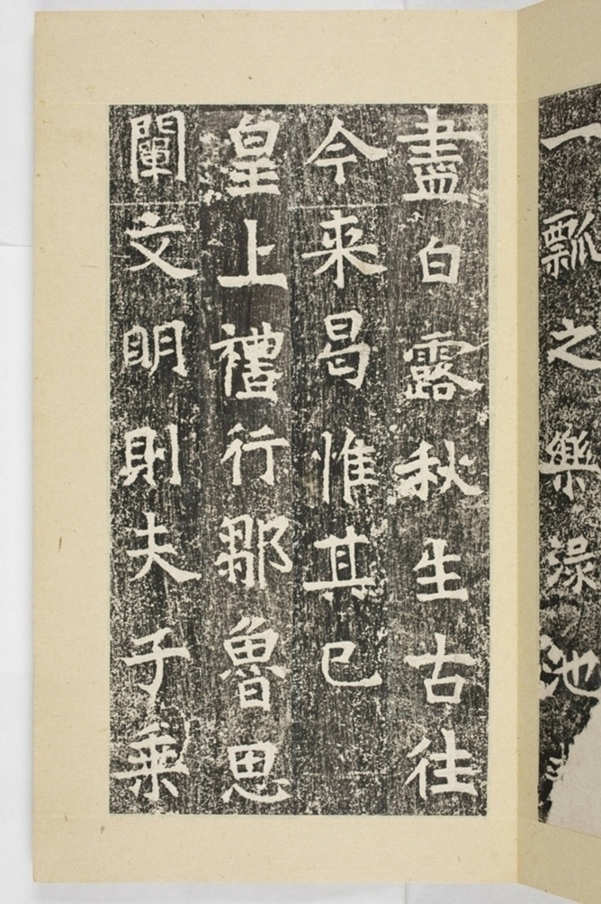 一瓢之樂渌池
盡白露秋生古徃
今来曷惟其已
皇上禮行鄒魯思
闡文明則夫子乘